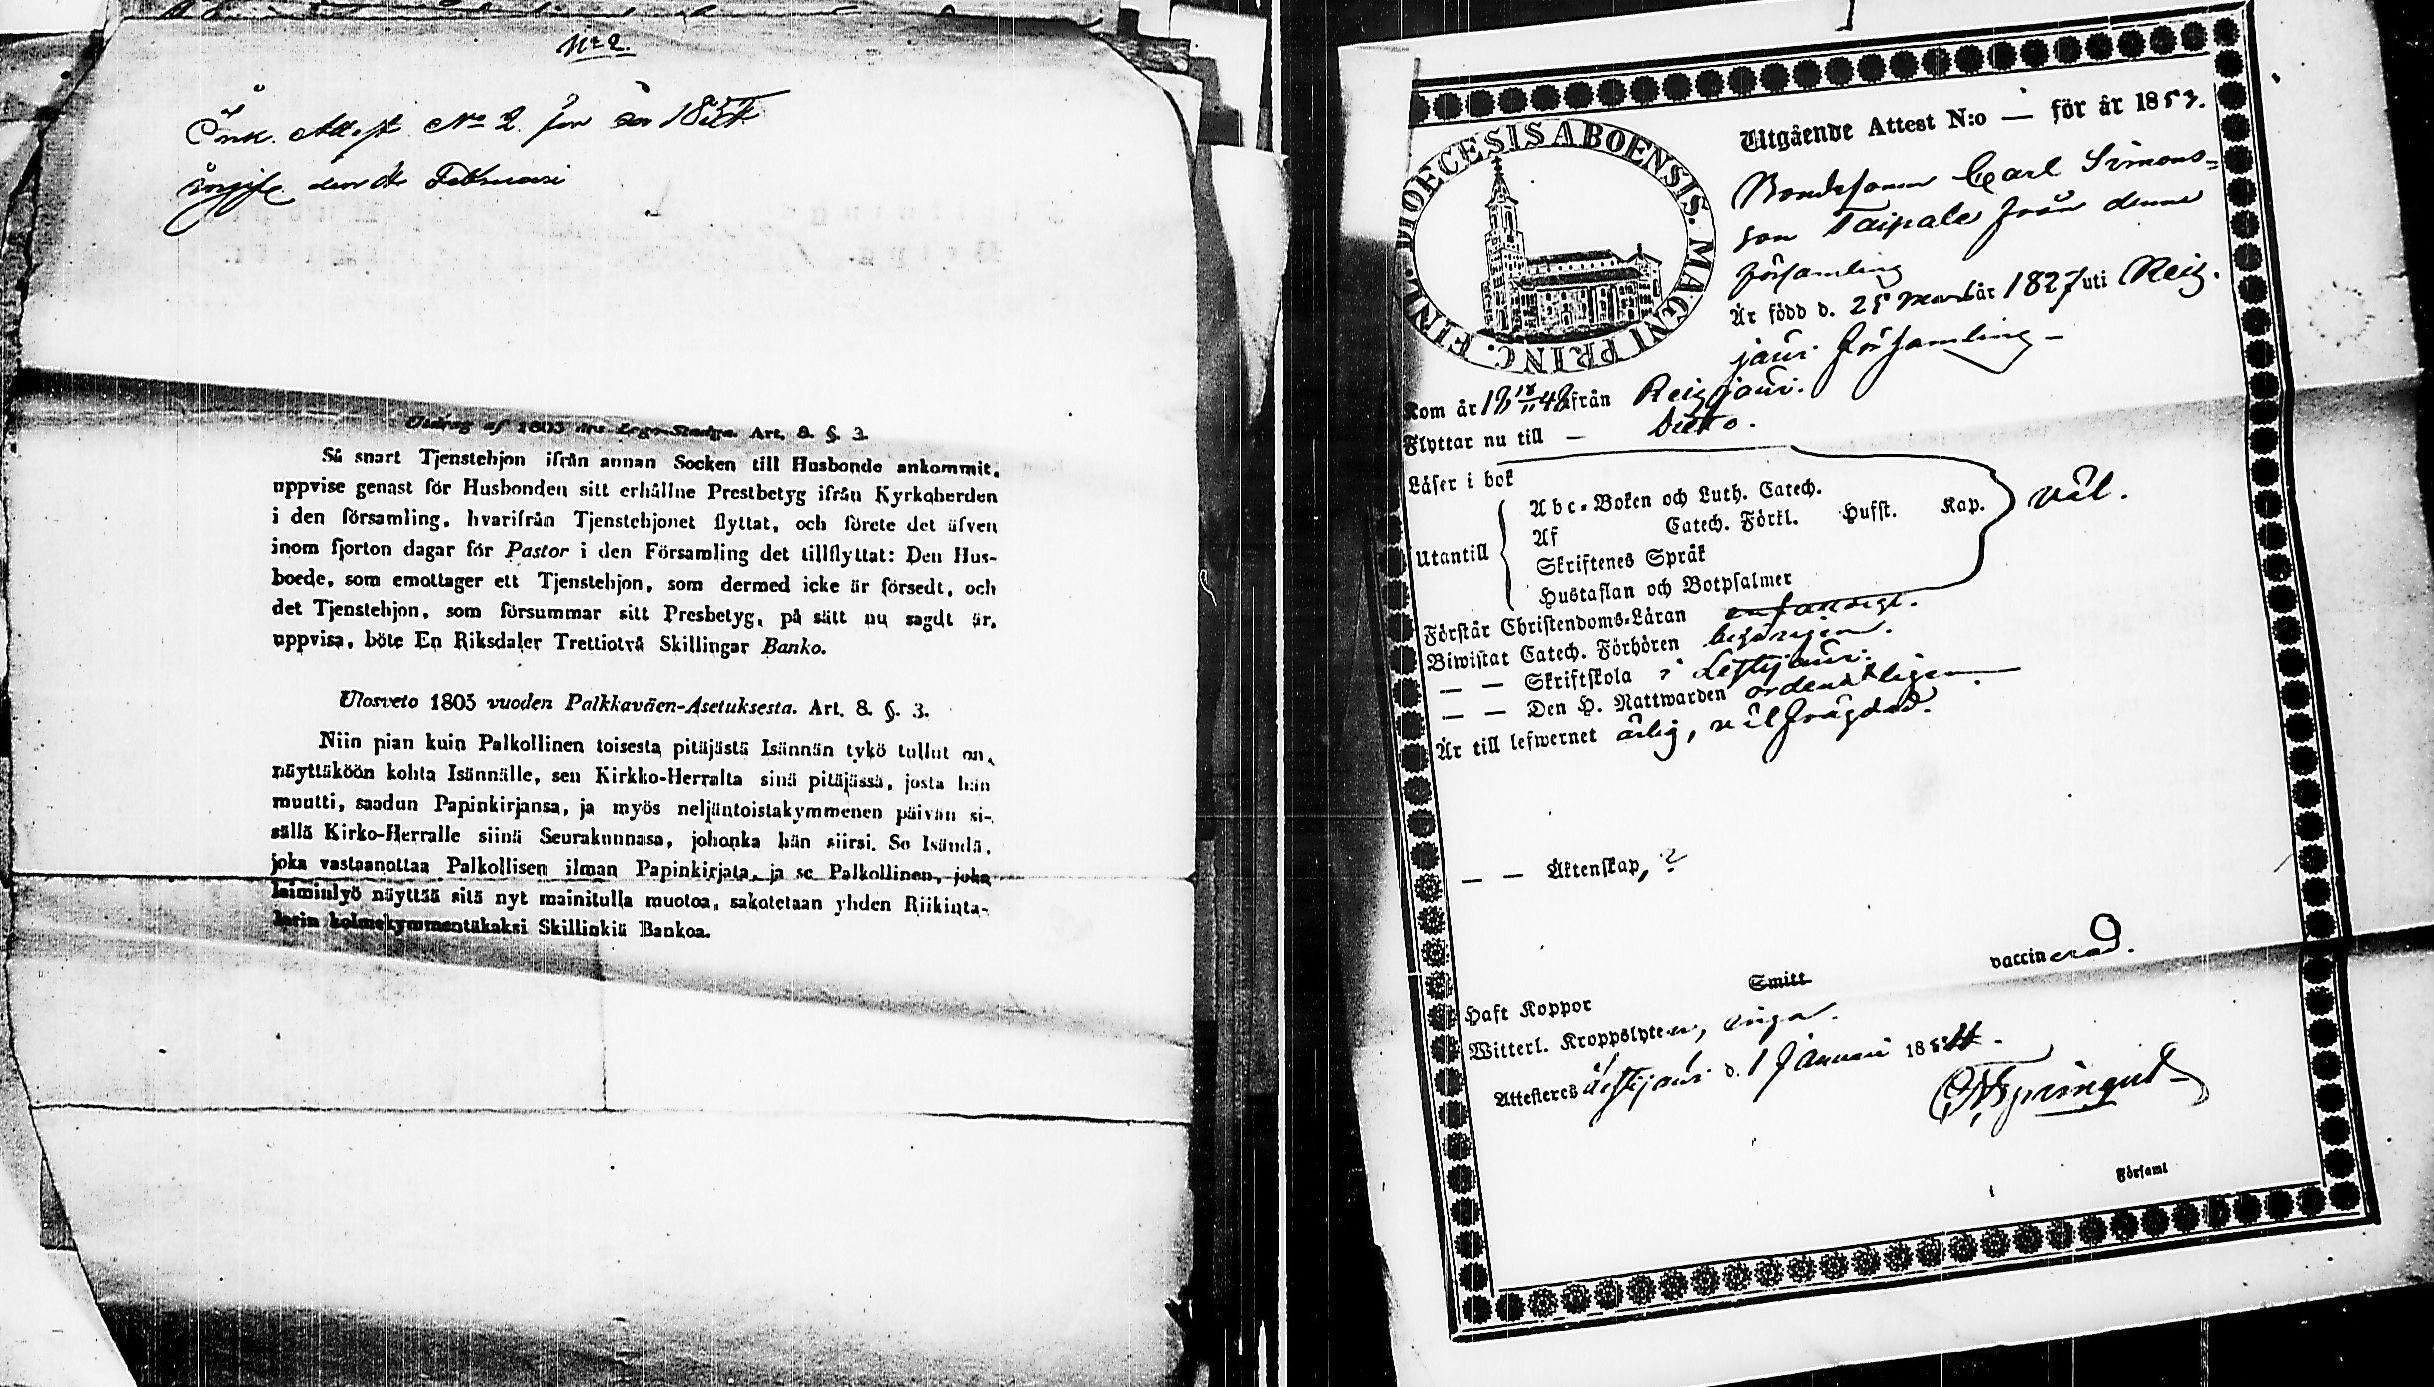 No 2.
Ank. Attest No 2. för år 1854
den Februari
Utdrag af 1805 års Lego-Stadga. Art. 8. §. 3.
Så snart Tjenstehjon ifrån annan Socken till Husbonde ankommit,
uppvise genast för Husbonden sitt erhållne Prestbetyg ifrån Kyrkoherden
i den församling, hvarifrån Tjenstehjonet flyttat, och förete det äfven
inom fjorton dagar för Pastor i den Församling det tillflyttat: Den Hus-
bonde, som emottager ett Tjenstehjon, som dermed icke är försedt, och
det Tjenstehjon, som försummar sitt Presbetyg, på sätt nu sagdt är,
uppvisa, böte En Riksdaler Trettiotvå Skillingar Banko.
Ulosveto 1805 vuoden Palkkaväen-Asetuksesta. Art. 8. §. 3.
Niin pian kuin Palkollinen toisesta pitäjästä Isännän tykö tullut on,
näyttäköön kohta Isännälle, sen Kirkko-Herralta sinä pitäjässä, josta hän
muutti, saadun Papinkirjansa, ja myös neljäntoistakymmenen päivän si-
sällä Kirko-Herralle siinä Seurakunnasa, johonka hän siirsi. Se Isändä,
joka vastaanottaa Palkollisen ilman Papinkirjata, ja se Palkollinen, joka
laiminlyö näyttää sitä nyt mainitulla muotoa, sakotetaan yhden Riikinta-
larin kolmekymmentäkaksi Skillinkiä Bankoa.
DIOECESIS ABOENSIS. MAGNI PRINC. FINL.
Utgående Attest N:o — för år 1853.
Bondesonen Carl Simons-
son Taipale från denna
församling
Är född d. 25 Mars år 1827 uti Reis-
järvi församling —
Kom år 18 18/11 48 från Reisjärvi.
Flyttar nu till — Ditto.
Läser i bok
Utantill
Abc-Boken och Luth. Catech.
Af Catech. Förkl. Hufst. Kap.
Skriftenes Språk
Hustaflan och Botpsalmer
väl.
Förstår Christendoms-Läran enfaldigt.
Biwistat Catech. Förhören
— — Skriftskola i Lestijärvi.
— — Den H. Nattwarden ordentligen.
Är till lefwernet ärlig, välfrägdad.
— — Äktenskap, ?
Smitt
Haft Koppor vaccinerad.
Witterl. Kroppslyten, inga.
Attesteras Lestijärvi d. 1 Januari 1854.
Församl